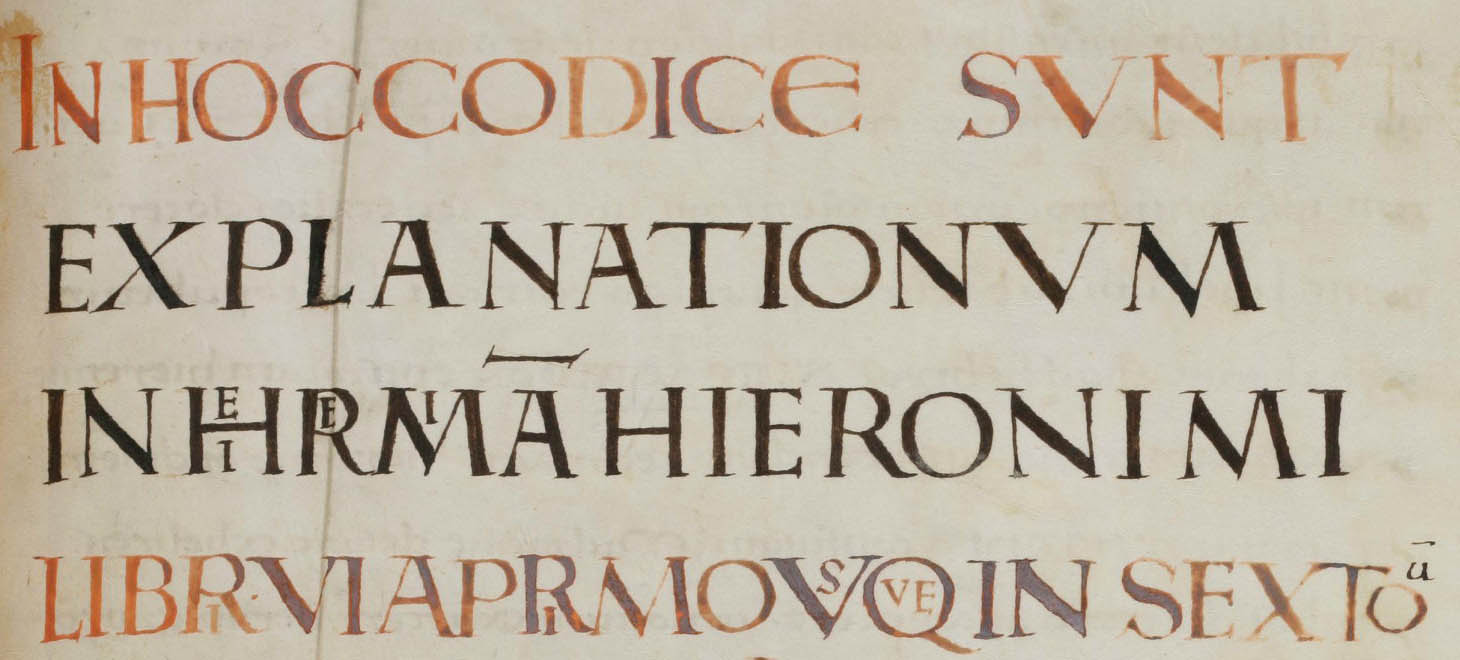 IN HOC CODICE SVNT
EXPLANATIONVM
IN HIEREMIĀ HIERONIMI
LIBRI·VI A PRIMO VSQVE IN SEXTOū